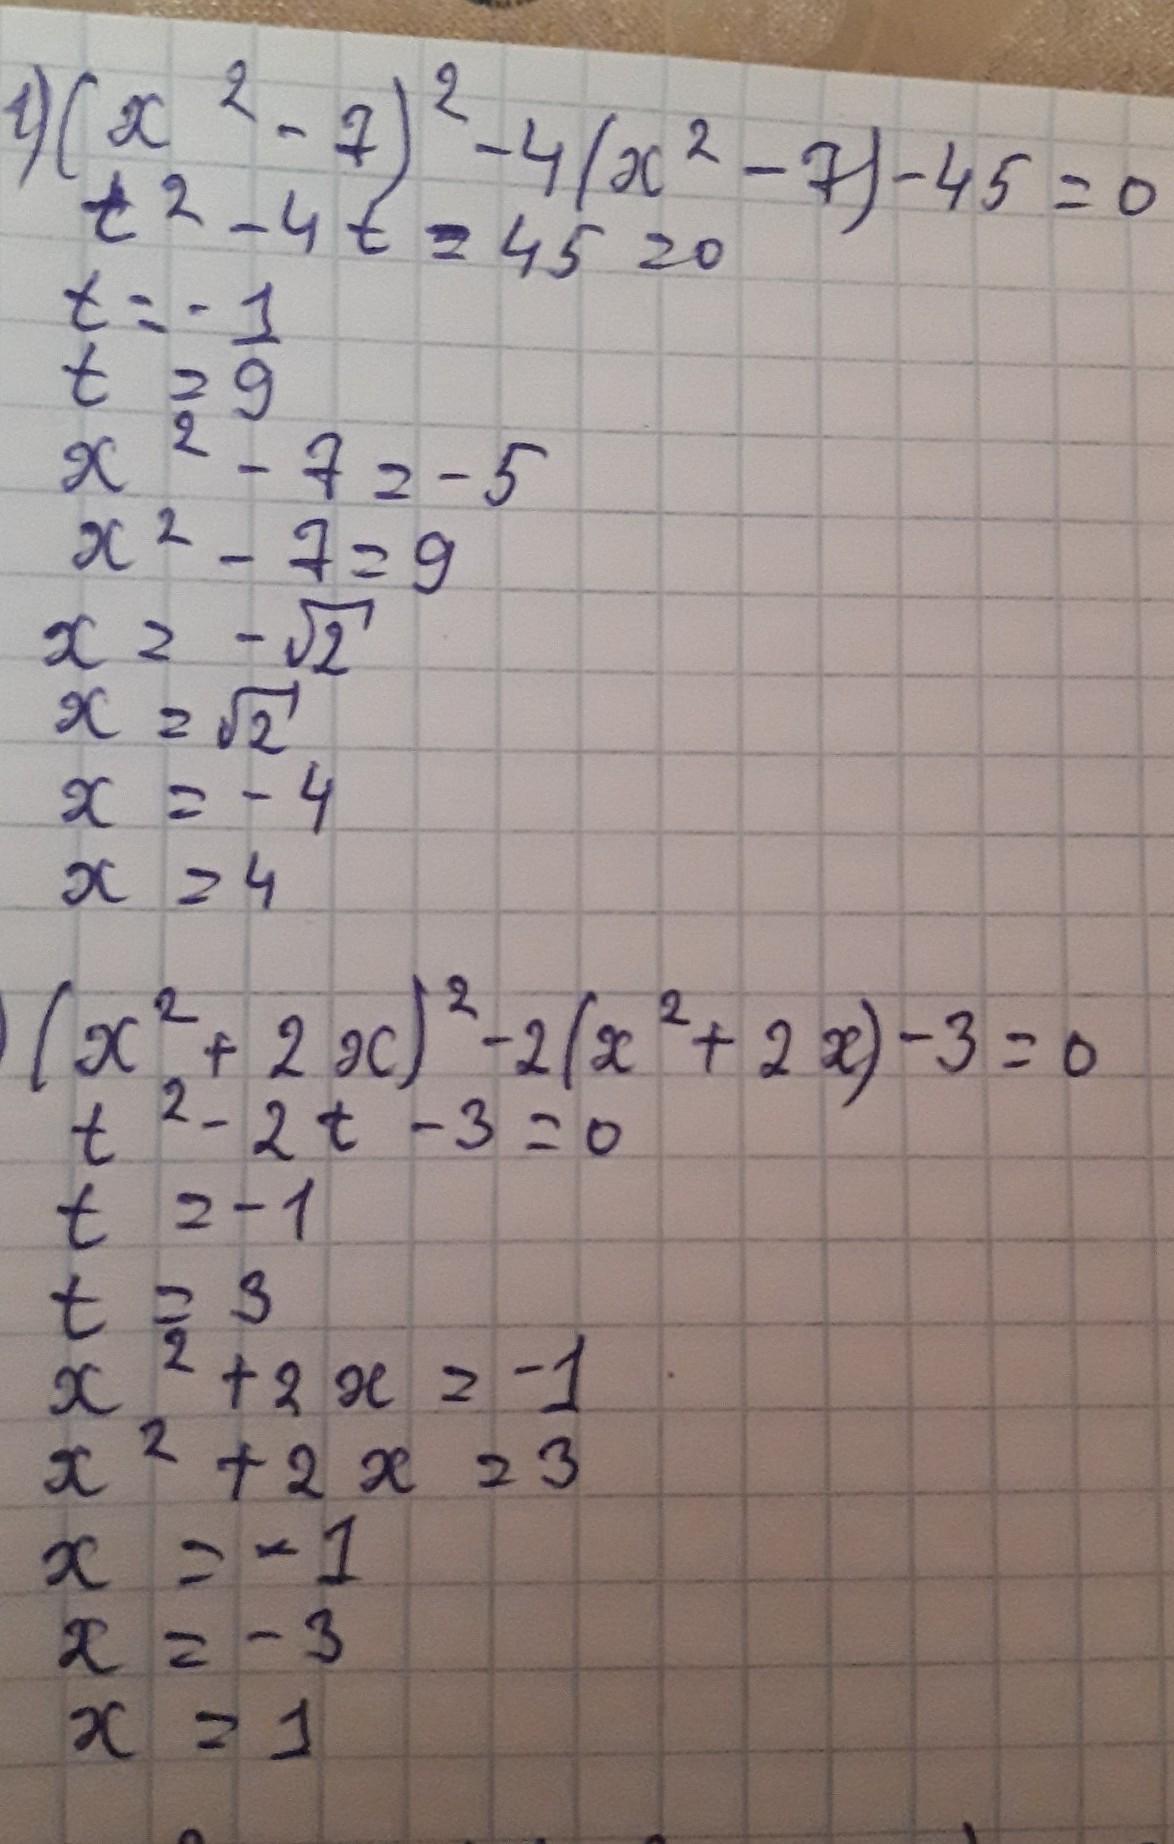 1) (x² - 7)² - 4(x² - 7) - 45 = 0
t² - 4t = 45 = 0
t = - 1
t = 9
x² - 7 = - 5
x² - 7 = 9
x = - √2
x = √2
x = - 4
x = 4
) (x² + 2x)² - 2(x² + 2x) - 3 = 0
t² - 2t - 3 = 0
t = - 1
t = 3
x² + 2x = - 1
x² + 2x = 3
x = - 1
x = - 3
x = 1